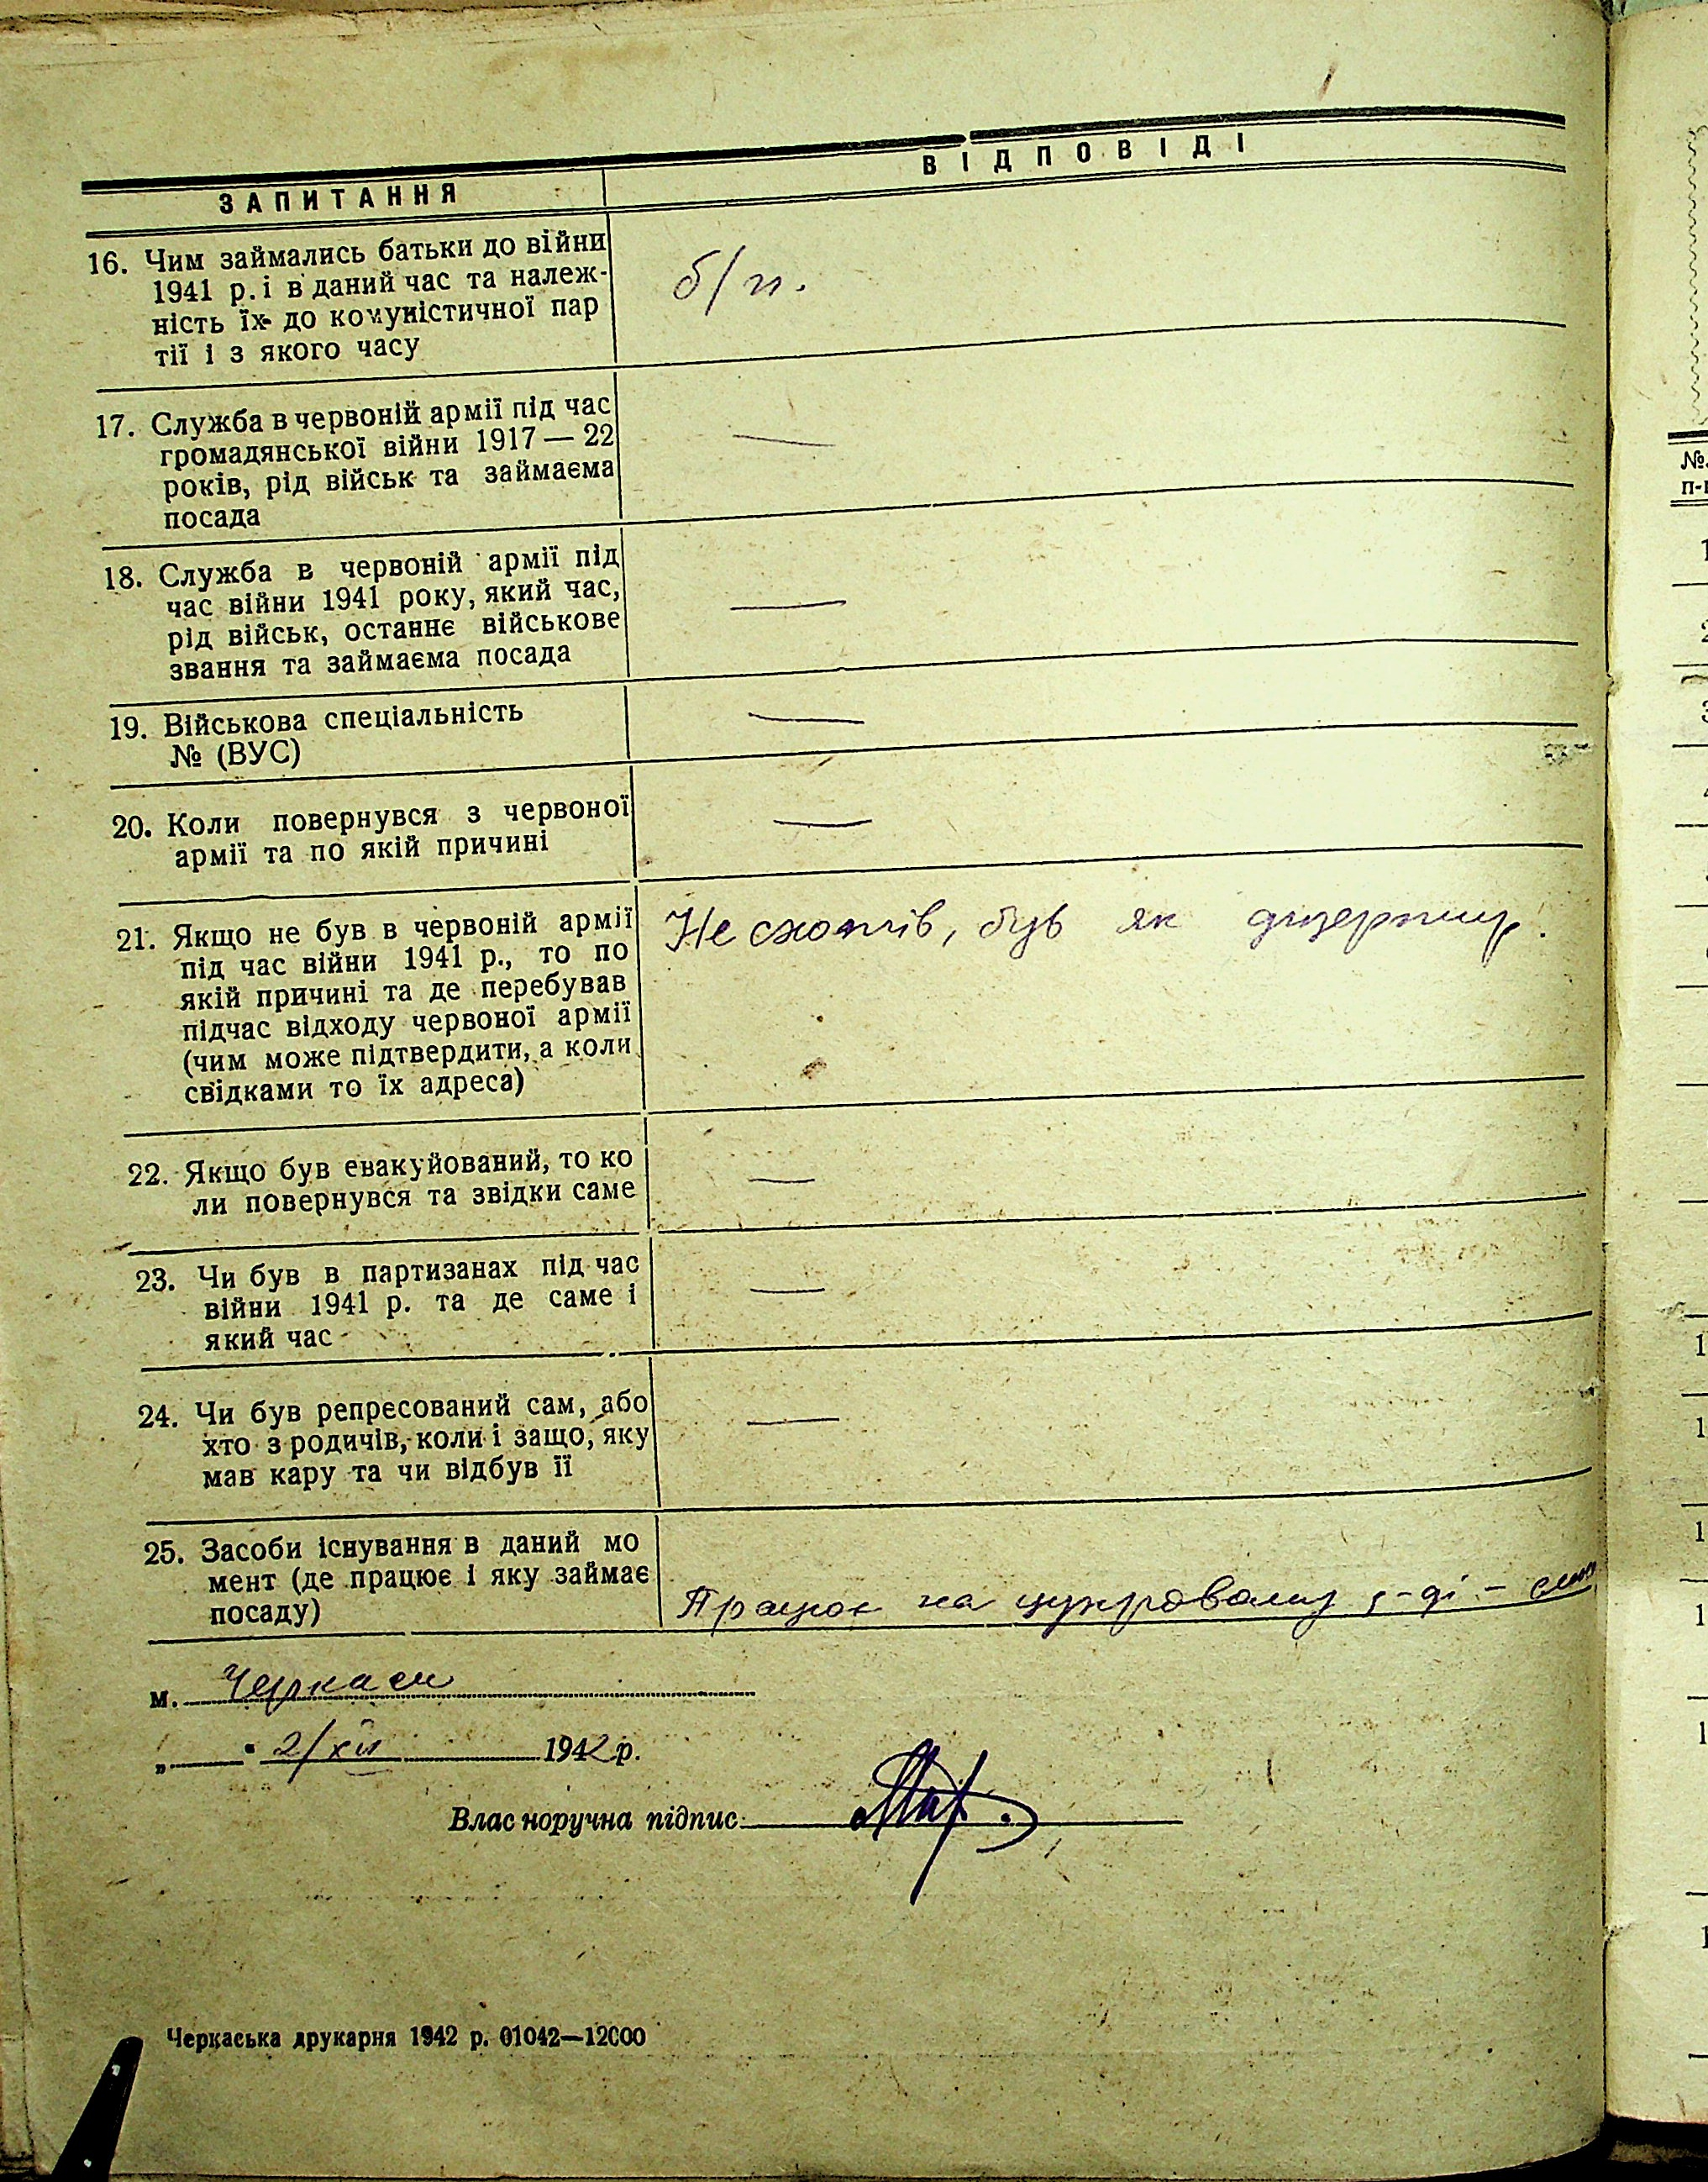 ЗАПИТАННЯ
ВІДПОВІДІ
16. Чим займались батьки до війни
1941 р. і в даний час та належ-
ність їх до комуністичної пар
тії і з якого часу
б/п.
17. Служба в червоній армії під час
громадянської війни 1917 — 22
років, рід військ та займаєма
посада
—
18. Служба в червоній армії під
час війни 1941 року, який час,
рід військ, останнє військове
звання та займаєма посада
—
19. Військова спеціальність
№ (ВУС)
—
20. Коли повернувся з червоної
армії та по якій причині
—
21. Якщо не був в червоній армії
під час війни 1941 р., то по
якій причині та де перебував
підчас відходу червоної армії
(чим може підтвердити, а коли
свідками то їх адреса)
Не схотів, був як дизертир.
22. Якщо був евакуйований, то ко
ли повернувся та звідки саме
—
23. Чи був в партизанах під час
війни 1941 р. та де саме і
який час
—
24. Чи був репресований сам, або
хто з родичів, коли і защо, яку
мав кару та чи відбув її
—
25. Засоби існування в даний мо
мент (де працює і яку займає
посаду)
Працює на цукровому з-ді -
м. Черкаси
„ " 2/XII 1942 р.
Власноручна підпис
Черкаська друкарня 1942 р. 01042—12000
№
п-